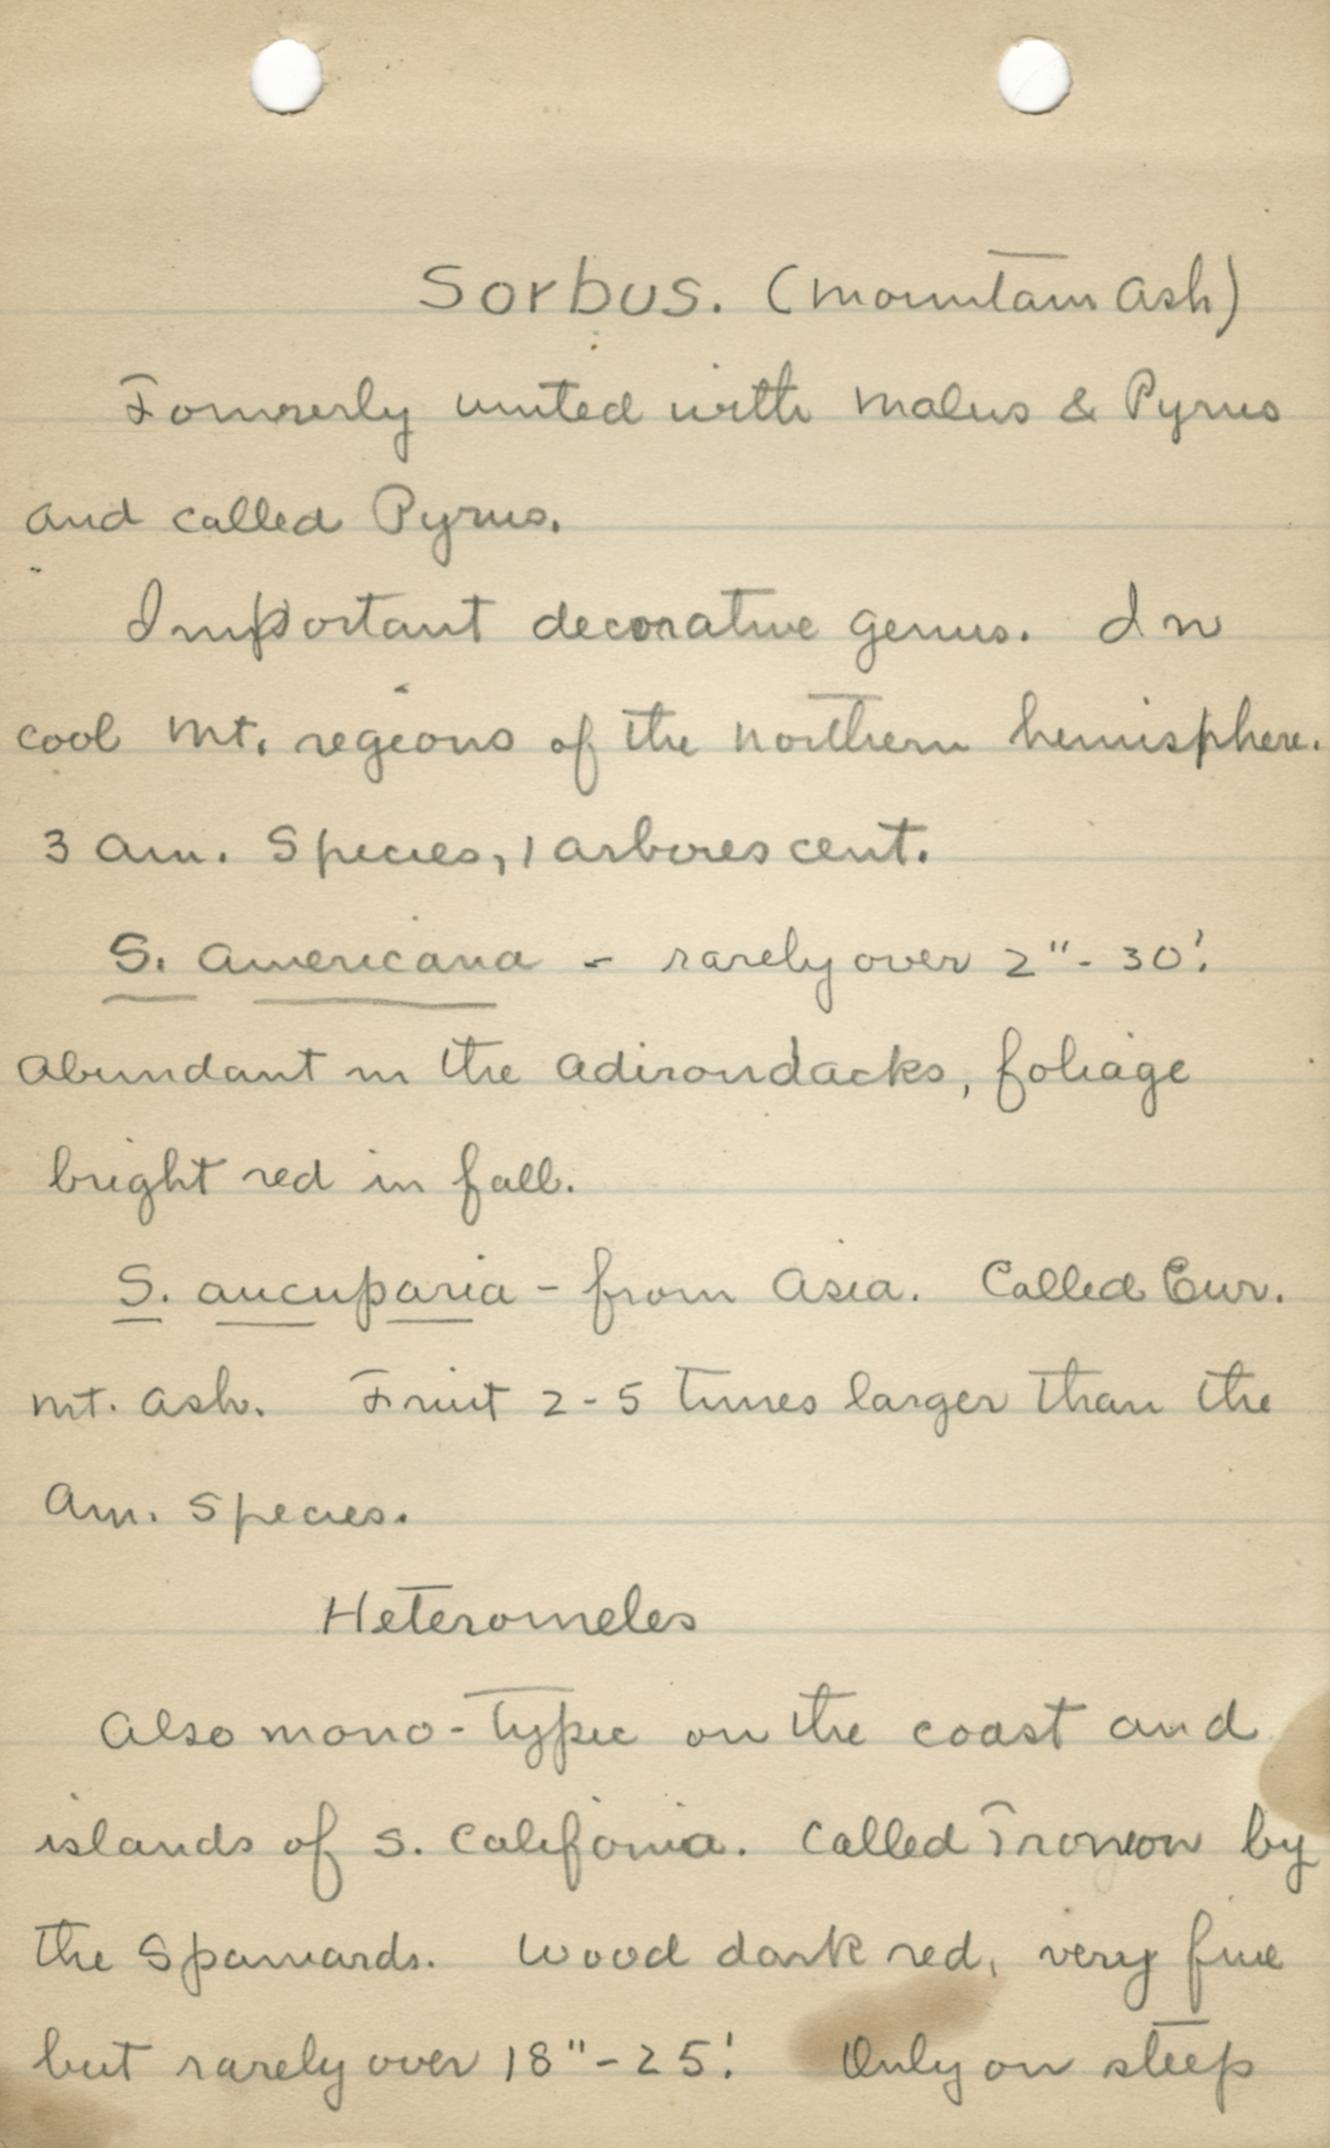 Sorbus. (Mountain Ash)
Formerly united with Malus & Pyrus
and called Pyrus.
Important decorative genus. In
cool Mt. regions of the northern hemisphere.
3 Am. Species, 1 arborescent.
S. americana - rarely over 2"- 30'.
Abundant in the Adirondacks, foliage
bright red in fall.
S. aucuparia - from Asia. Called Eur.
Mt. Ash. Fruit 2-5 times larger than the
Am. Species.
Heteromeles
Also mono-typic on the coast and
islands of S. California. Called by
the Spaniards. Wood dark red, very fine
but rarely over 18"-25'. Only on steep